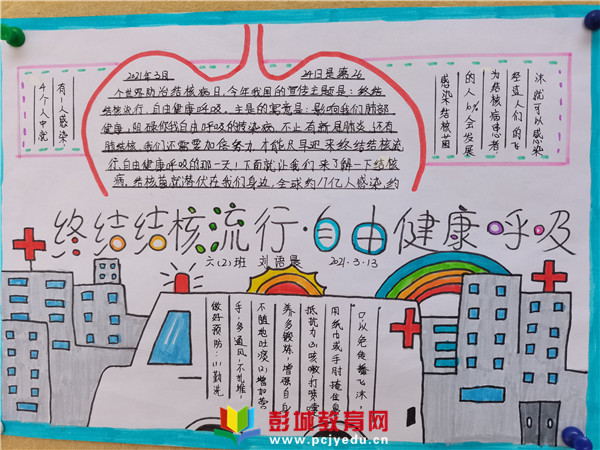 2021年3月
24日是第26
个世界防治结核病日,今年我国的宣传主题是:终结
结核流行,自由健康呼吸,主题的寓意是:影响我们肺部
健康,阻碍你我自由呼吸的传染病,不止有新冠肺炎,还有
肺结核,我们还需要加倍努力才能尽早迎来终结结核流
行,自由健康呼吸的那一天!下面就让我们来了解一下结核
病,结核菌就潜伏在我们身边,全球约17亿人感染,约
4个人中就
有1人感染
沫就可以感染
轻查人们的飞
为结核病患者,
的人10%会发展
感染结核菌
终结结核流行·自由健康呼吸
六(2)班 刘语晨 2021.3.13
做好预防:(1)勤洗
手,多通风,不扎堆,
不随地吐痰(2)增加营
养多锻炼,增强自身
抵抗力(3)咳嗽、打喷嚏
用纸巾或手肘掩住口鼻
可以避免传播飞沫
彭城教育网
www.pcjyedu.cn